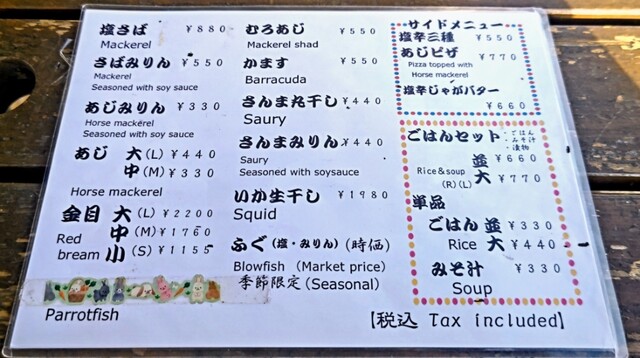 塩さば ¥880
Mackerel
さばみりん ¥550
Mackerel
Seasoned with soy sauce
あじみりん ¥330
Horse mackerel
Seasoned with soy sauce
あじ 大(L) ¥440
中(M) ¥330
Horse mackerel
金目 大(L) ¥2200
Red bream 中(M) ¥1760
小(S) ¥1155
Parrotfish
むろあじ ¥550
Mackerel shad
かます ¥550
Barracuda
さんま丸干し ¥440
Saury
さんまみりん ¥440
Saury
Seasoned with soysauce
いか生干し ¥1980
Squid
ふぐ(塩・みりん)(時価)
Blowfish (Market price)
季節限定(Seasonal)
サイドメニュー
塩辛三種 ¥550
あじピザ ¥770
Pizza topped with
Horse mackerel
塩辛じゃがバター
¥660
ごはんセット ・ごはん
・みそ汁
・漬物
並 ¥660
Rice&soup
(R)(L) 大 ¥770
単品
ごはん 並 ¥330
Rice 大 ¥440
みそ汁 ¥330
Soup
【税込 Tax included】